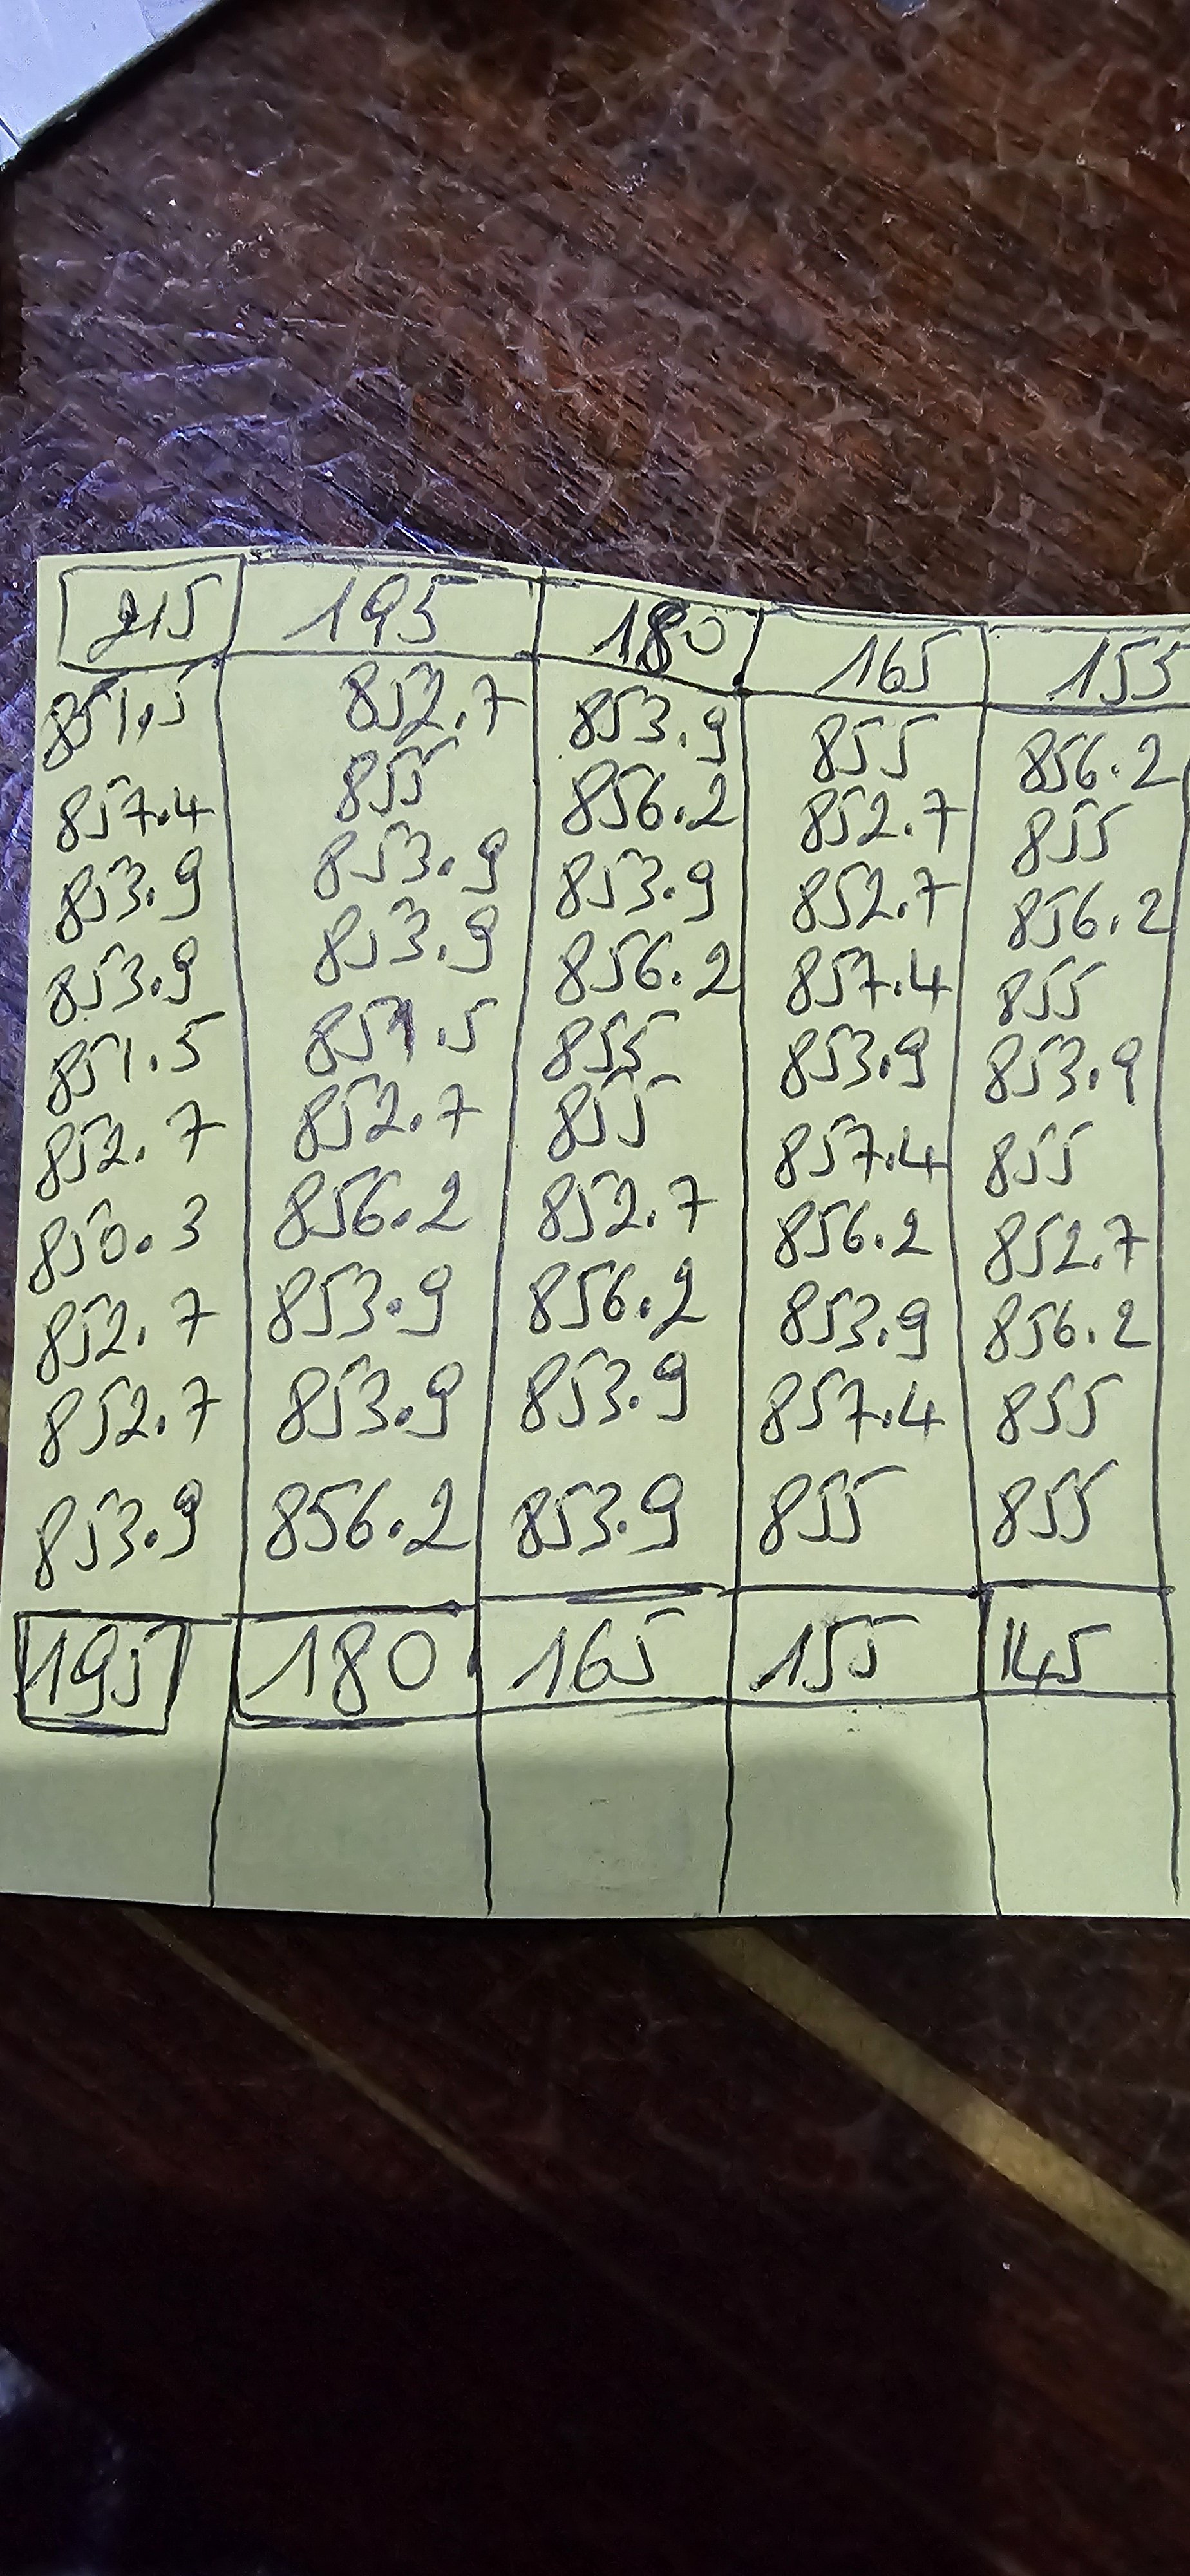 215 195 180 165 155
851.5 852.7 853.9 855 856.2
857.4 855 856.2 852.7 855
853.9 853.9 853.9 852.7 856.2
853.9 853.9 856.2 857.4 855
851.5 851.5 855 853.9 853.9
852.7 852.7 855 857.4 855
850.3 856.2 852.7 856.2 852.7
852.7 853.9 856.2 853.9 856.2
852.7 853.9 853.9 857.4 855
853.9 856.2 853.9 855 855
195 180 165 155 145